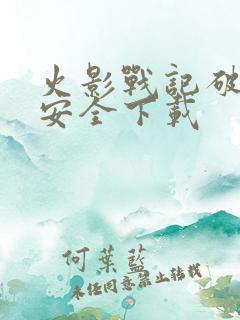 火影戰記破
安全下載
何葉藍
未經同意禁止轉載